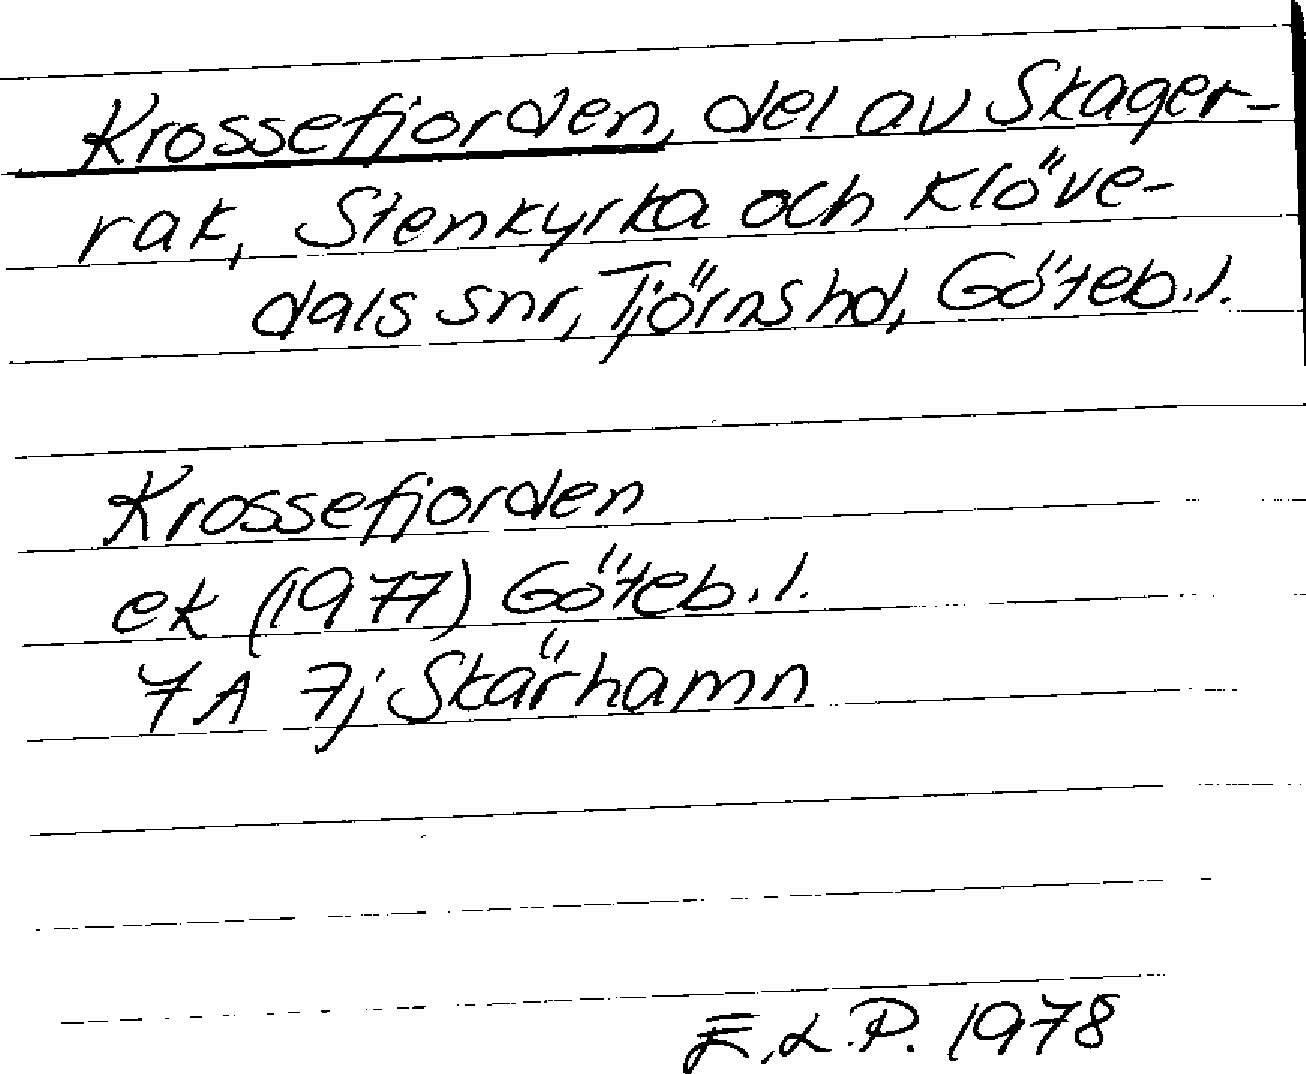 Krossefjorden, del av Skager-
rak, Stenkyrka och Klöve-
dals snr, Tjörns hd, Göteb.l.
Krossefjorden
ek (1977) Göteb.l.
7A 7j Skärhamn
E.L.P. 1978